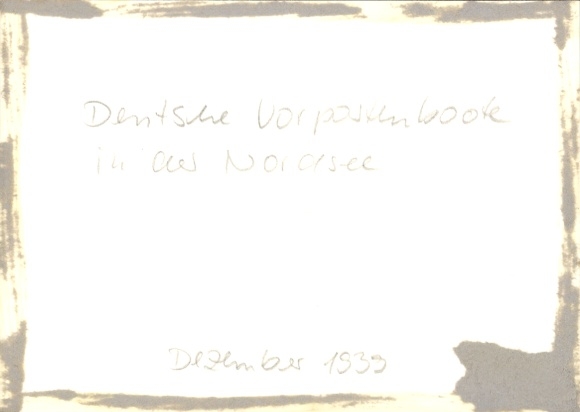 Deutsche Vorpostenboote
in der Nordsee
Dezember 1939